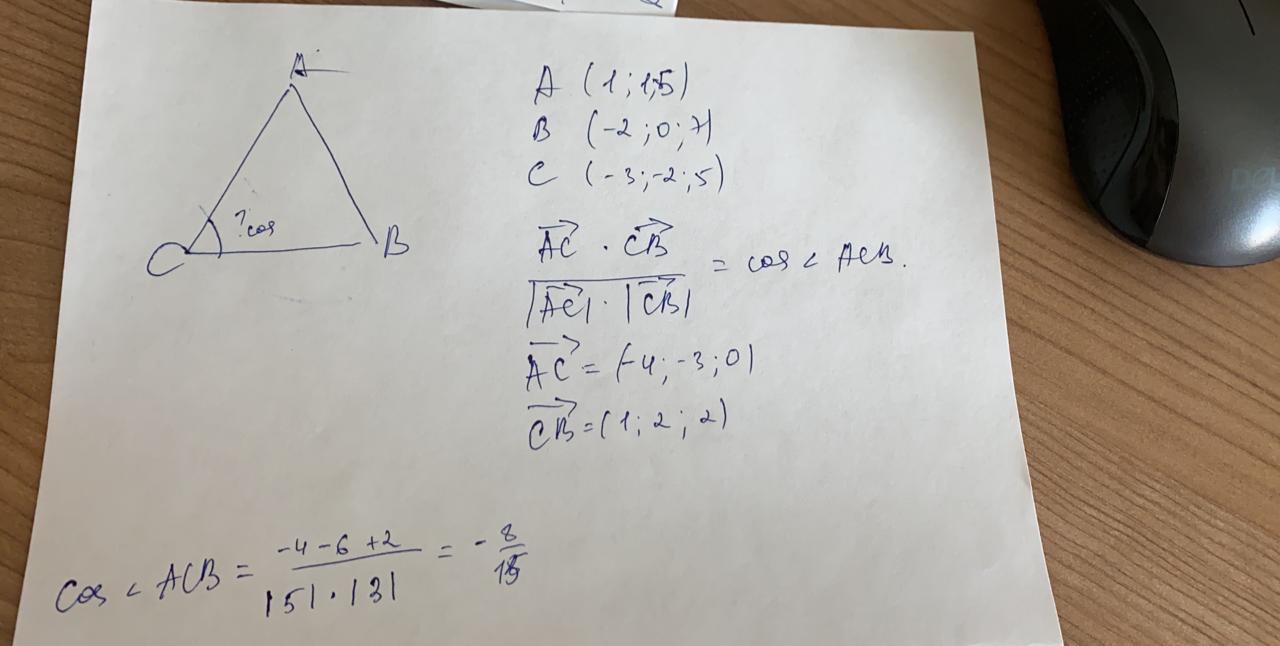 A
?cos
C
B
A (1;1;5)
B (-2;0;7)
C (-3;-2;5)
AC · CB
|AC| · |CB|
= cos < ACB.
AC = (-4;-3;0)
CB = (1;2;2)
Cos < ACB = -4-6+2 / |5|·|3| = - 8/15